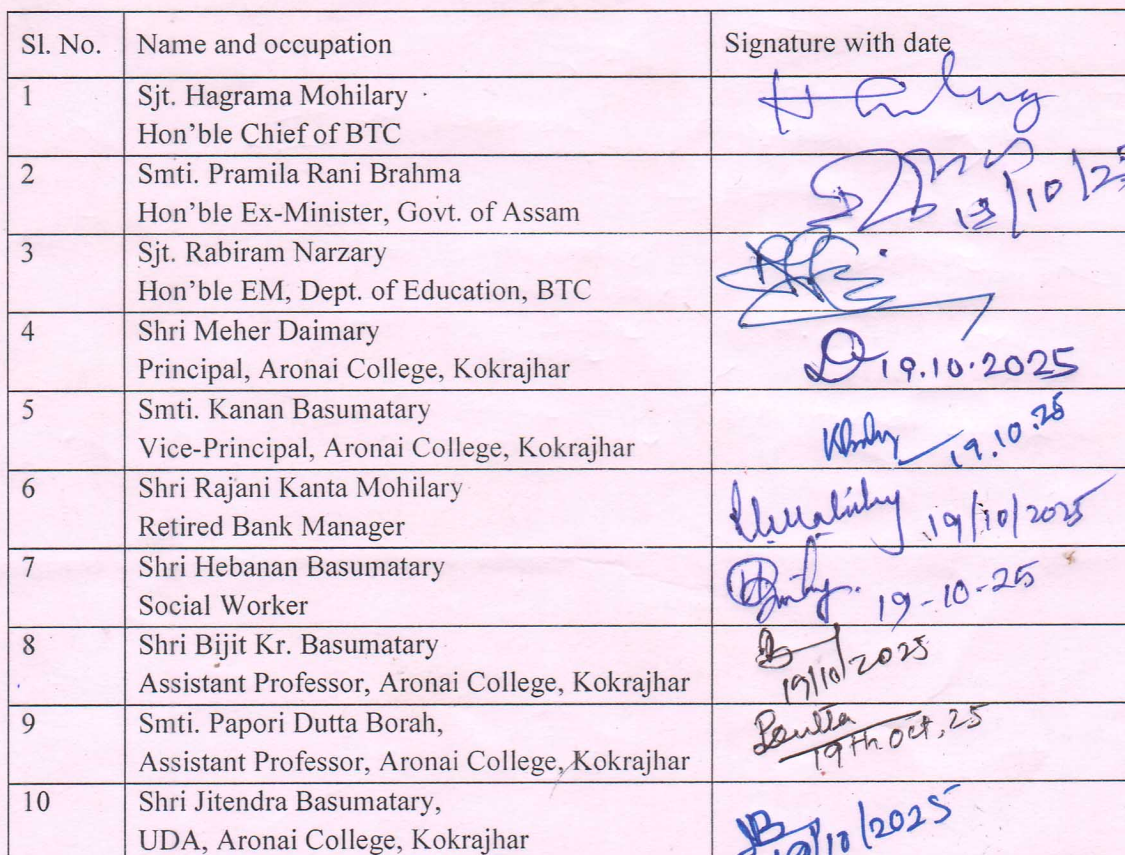 Sl. No. Name and occupation Signature with date
1 Sjt. Hagrama Mohilary
Hon'ble Chief of BTC
2 Smti. Pramila Rani Brahma
Hon'ble Ex-Minister, Govt. of Assam
/10/25
3 Sjt. Rabiram Narzary
Hon'ble EM, Dept. of Education, BTC
4 Shri Meher Daimary
Principal, Aronai College, Kokrajhar
19.10.2025
5 Smti. Kanan Basumatary
Vice-Principal, Aronai College, Kokrajhar
19.10.25
6 Shri Rajani Kanta Mohilary
Retired Bank Manager
19/10/2025
7 Shri Hebanan Basumatary
Social Worker
19-10-25
8 Shri Bijit Kr. Basumatary
Assistant Professor, Aronai College, Kokrajhar
19/10/2025
9 Smti. Papori Dutta Borah,
Assistant Professor, Aronai College, Kokrajhar
19th Oct, 25
10 Shri Jitendra Basumatary,
UDA, Aronai College, Kokrajhar
19/10/2025